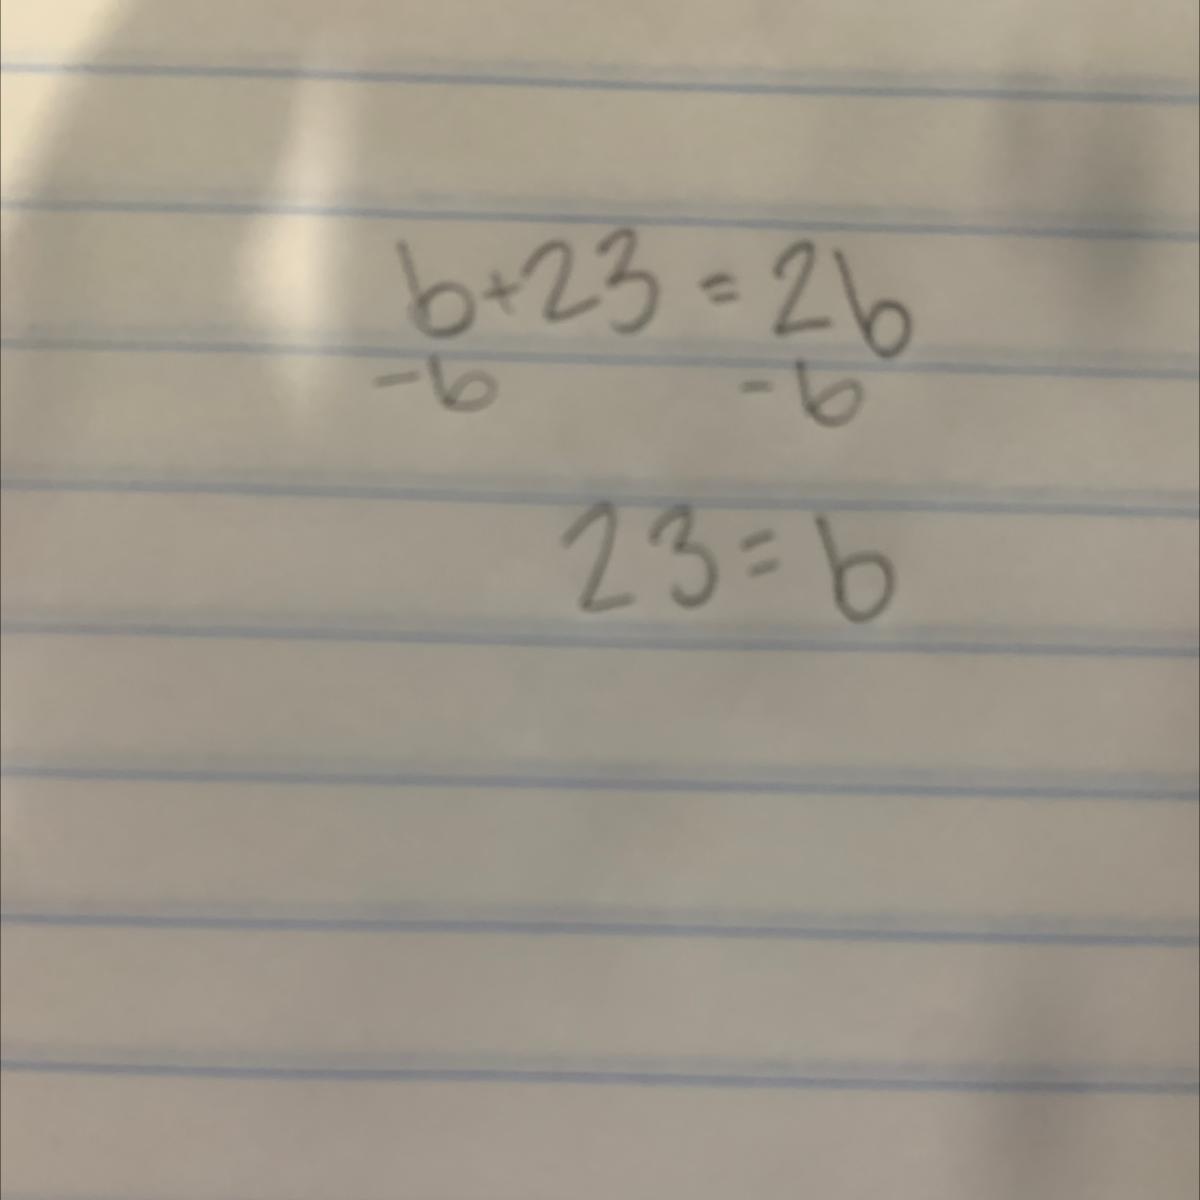 b+23 = 2b
-b -b
23 = b